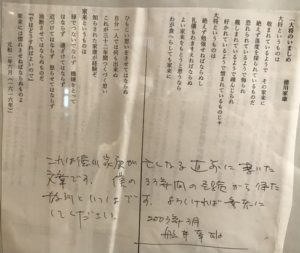 大将のいましめ
徳川家康
大将というものは
敬われているようでその家来に
絶えず落度を探られているものだ
恐れられているようで侮られ
親しまれているようで疎んじられ
好かれているようで憎まれているものじゃ
大将というものは
絶えず勉強せねばならぬし
礼儀もわきまえねばならぬ
よい家来をもとうと思うなら
わが食へらしても家来に
ひもじい思いをさせてはならぬ
自分一人では何も出来ぬ
これが三十二年間つくづく思い
知らされた家康が経験ぞ
家来というものは
禄でつないでならず、機嫌をとって
はならず、遠ざけてはならず
近づけてはならず、怒らせてはならず
油断させてはならぬものだ
「ではどうすればよいので」
家来は惚れさせねばならぬものよ
元和二年六月（一六一六年）
これは徳川家康が亡くなる直前に書いた
文章です。僕の33年間の経験から得た
2003年3月
してください。